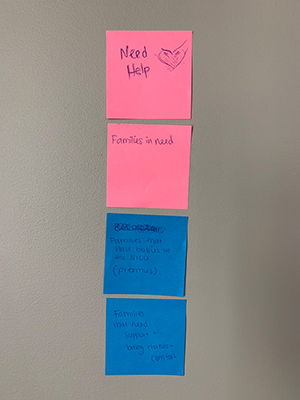 Need
Help
Families in need
Families that
have babies in
the NICU
(preemies)
Families
that need
support
being